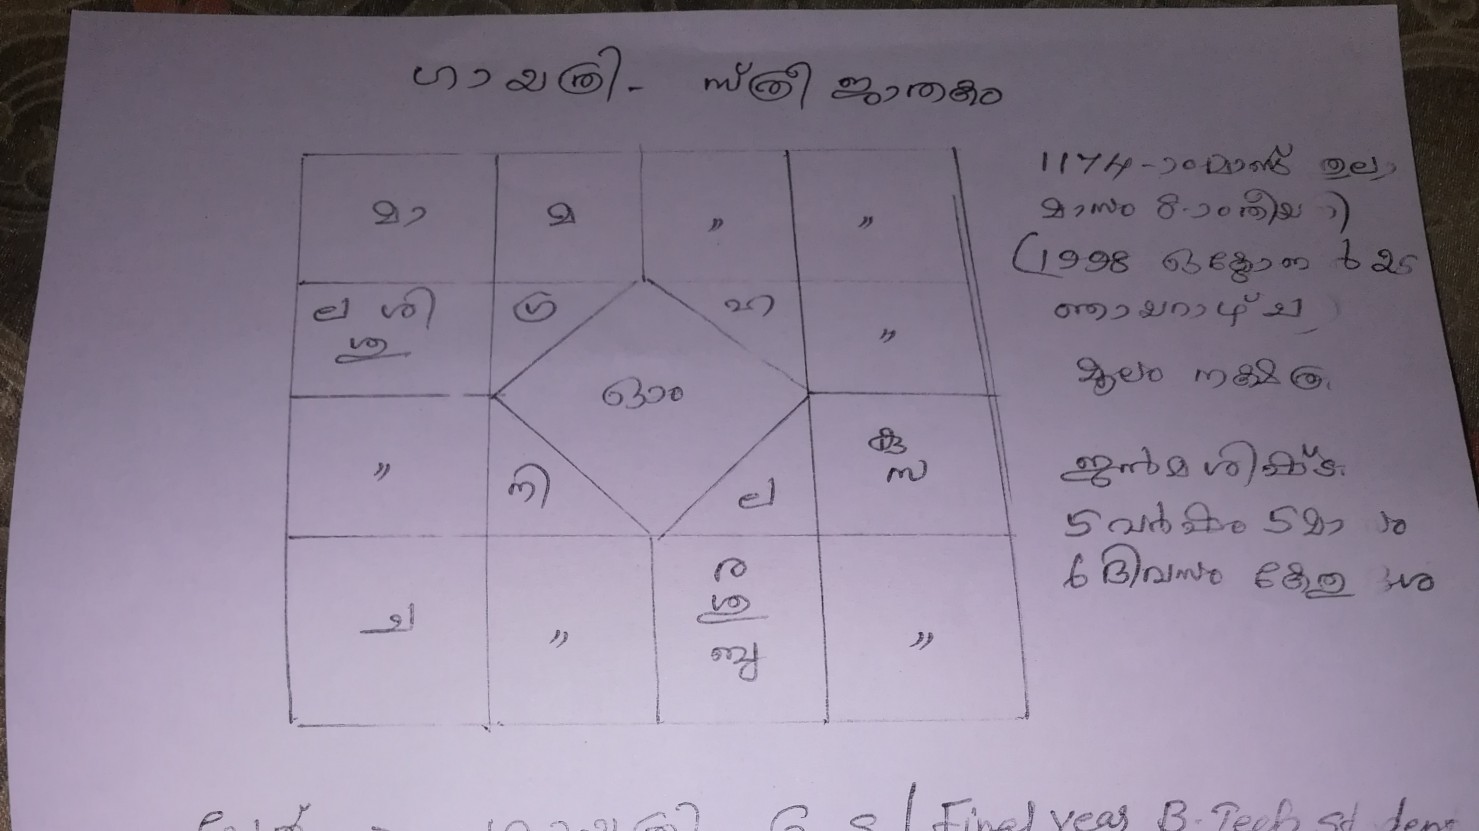 ഗായത്രി - സ്ത്രീ ജാതകം
മാ മ " "
ല ശി ഗ്ര ഹ "
ഗു
ഓം
" നി ല കു
സ
ച " ര "
ശു
ബു
1174-ാംമാണ്ട് തുലാ
മാസം 8-ാംതീയ
(1998 ഒക്ടോബർ 25
ഞായറാഴ്ച)
മൂലം നക്ഷത്ര
ജന്മ ശിഷ്ട
5 വർഷം 5 മാ
6 ദിവസം കേതു
പേര് - ഗായത്രി G S / Final year B.Tech Student